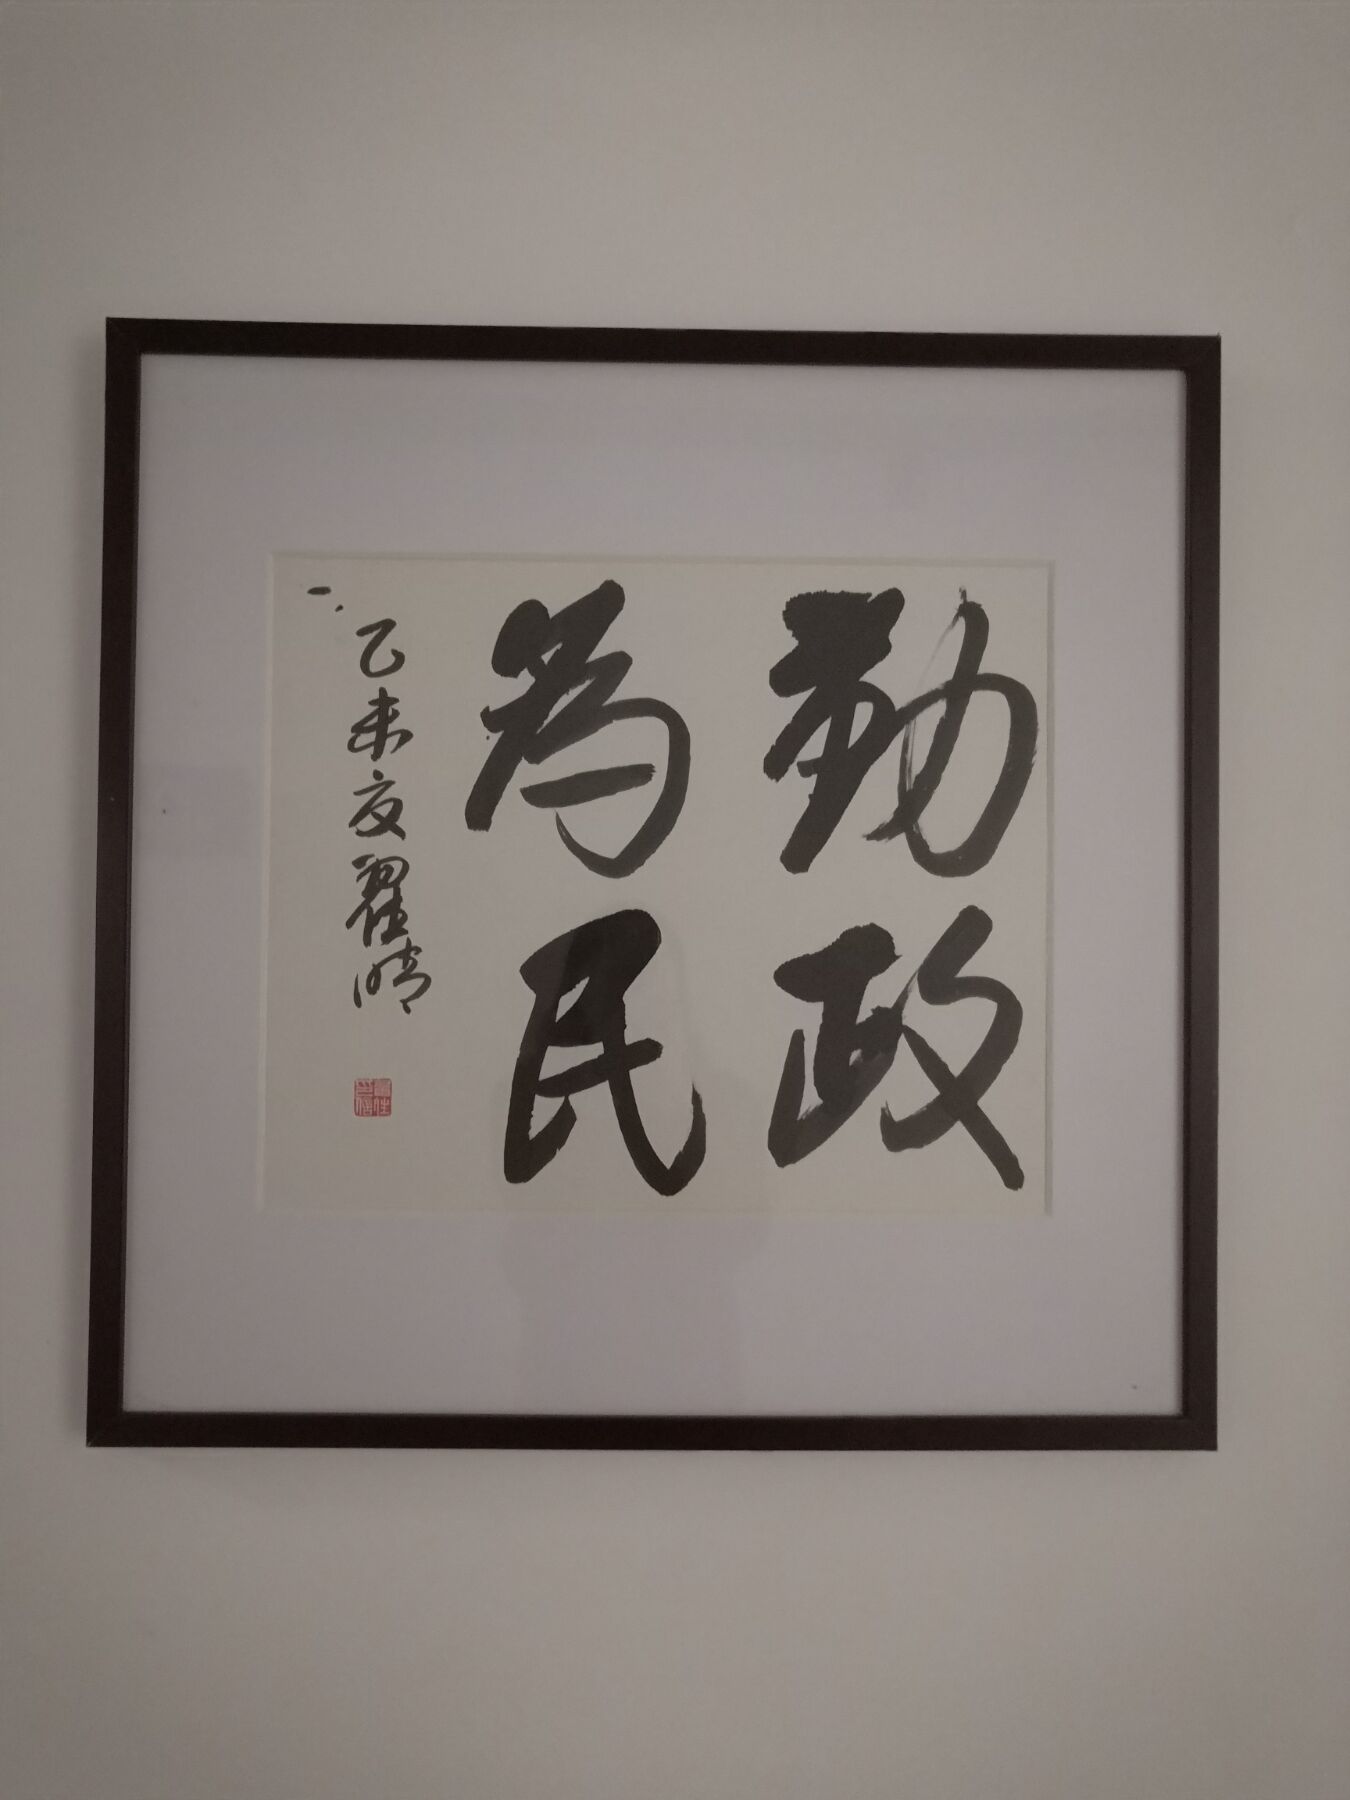 勤政
為民
乙未夏翟晴